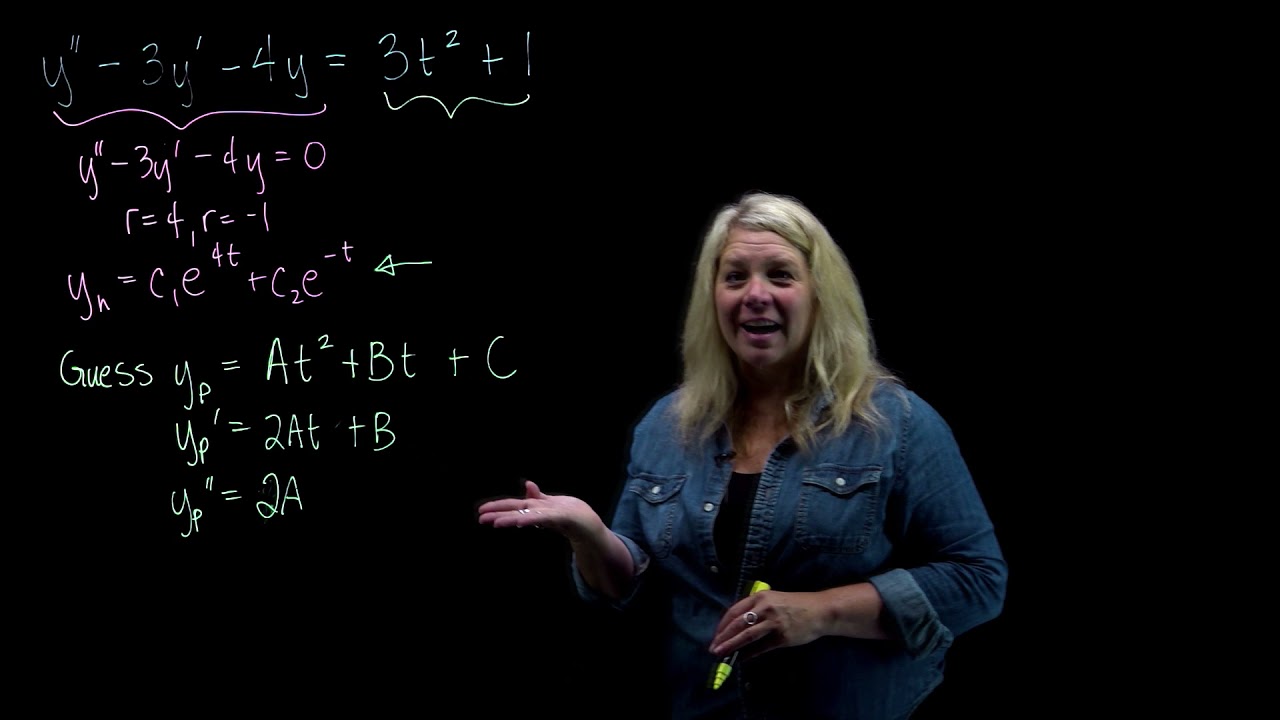 y'' - 3y' - 4y = 3t² + 1
y'' - 3y' - 4y = 0
r = 4, r = -1
yₕ = c₁e⁴ᵗ + c₂e⁻ᵗ ←
Guess yₚ = At² + Bt + C
yₚ' = 2At + B
yₚ'' = 2A